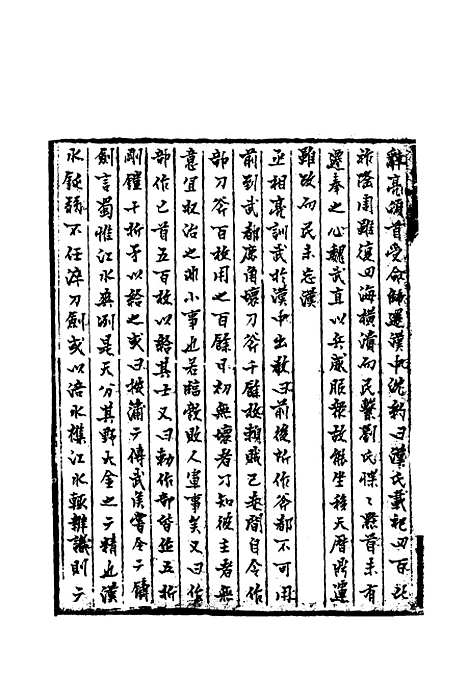 辭亮頓首受命師還漢中沈約曰漢氏載祀四百比
祚隆周雖復四海橫潰而民繫劉氏惵惵黔首未有
遷奉之心魏武直以兵威服眾故能坐移天曆鼎運
雖改而民未忘漢
丞相亮訓武於漢中出教曰前後所作斧都不可用
前到武都鹿角壞刀斧千餘枚賴賊已走間自令作
部刀斧百枚用之百餘日初無壞者乃知彼主者無
意宜収治之非小事也若臨敵敗人軍事矣又曰作
部作匕首五百枚以給其士又曰勅作部皆並五折
剛鎧十折矛以給之或曰按蒲元傳武侯嘗令元鑄
劍言蜀惟江水爽冽是天分其野大金之元精也漢
水鈍弱不任淬刀劍或以涪水江水輒辨識則元